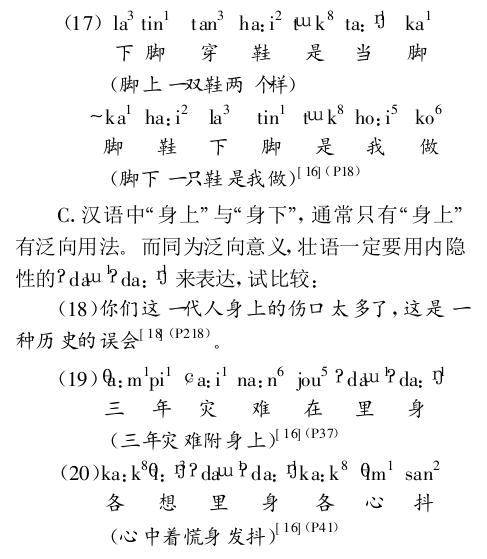 (17) la³ tin¹ tan³ ha:i² tɯk⁸ ta:ŋ¹ ka¹
下 脚 穿 鞋 是 当 脚
(脚上一双鞋两个样)
~ka¹ ha:i² la³ tin¹ tɯk⁸ ho:i⁵ ko⁶
脚 鞋 下 脚 是 我 做
(脚下一只鞋是我做)[16](P18)
C. 汉语中“身上”与“身下”,通常只有“身上”
有泛向用法。而同为泛向意义,壮语一定要用内隐
性的ʔdaɯ¹ʔda:ŋ¹来表达,试比较:
(18)你们这一代人身上的伤口太多了,这是一
种历史的误会[18](P218)。
(19)θa:m¹pi¹ ɕa:i¹ na:n⁶ jou⁵ ʔdaɯ¹ʔda:ŋ¹
三 年 灾 难 在 里 身
(三年灾难附身上)[16](P37)
(20)ka:k⁸θi:ŋ³ʔdaɯ¹ʔda:ŋ¹ka:k⁸ θim¹ san²
各 想 里 身 各 心 抖
(心中着慌身发抖)[16](P41)